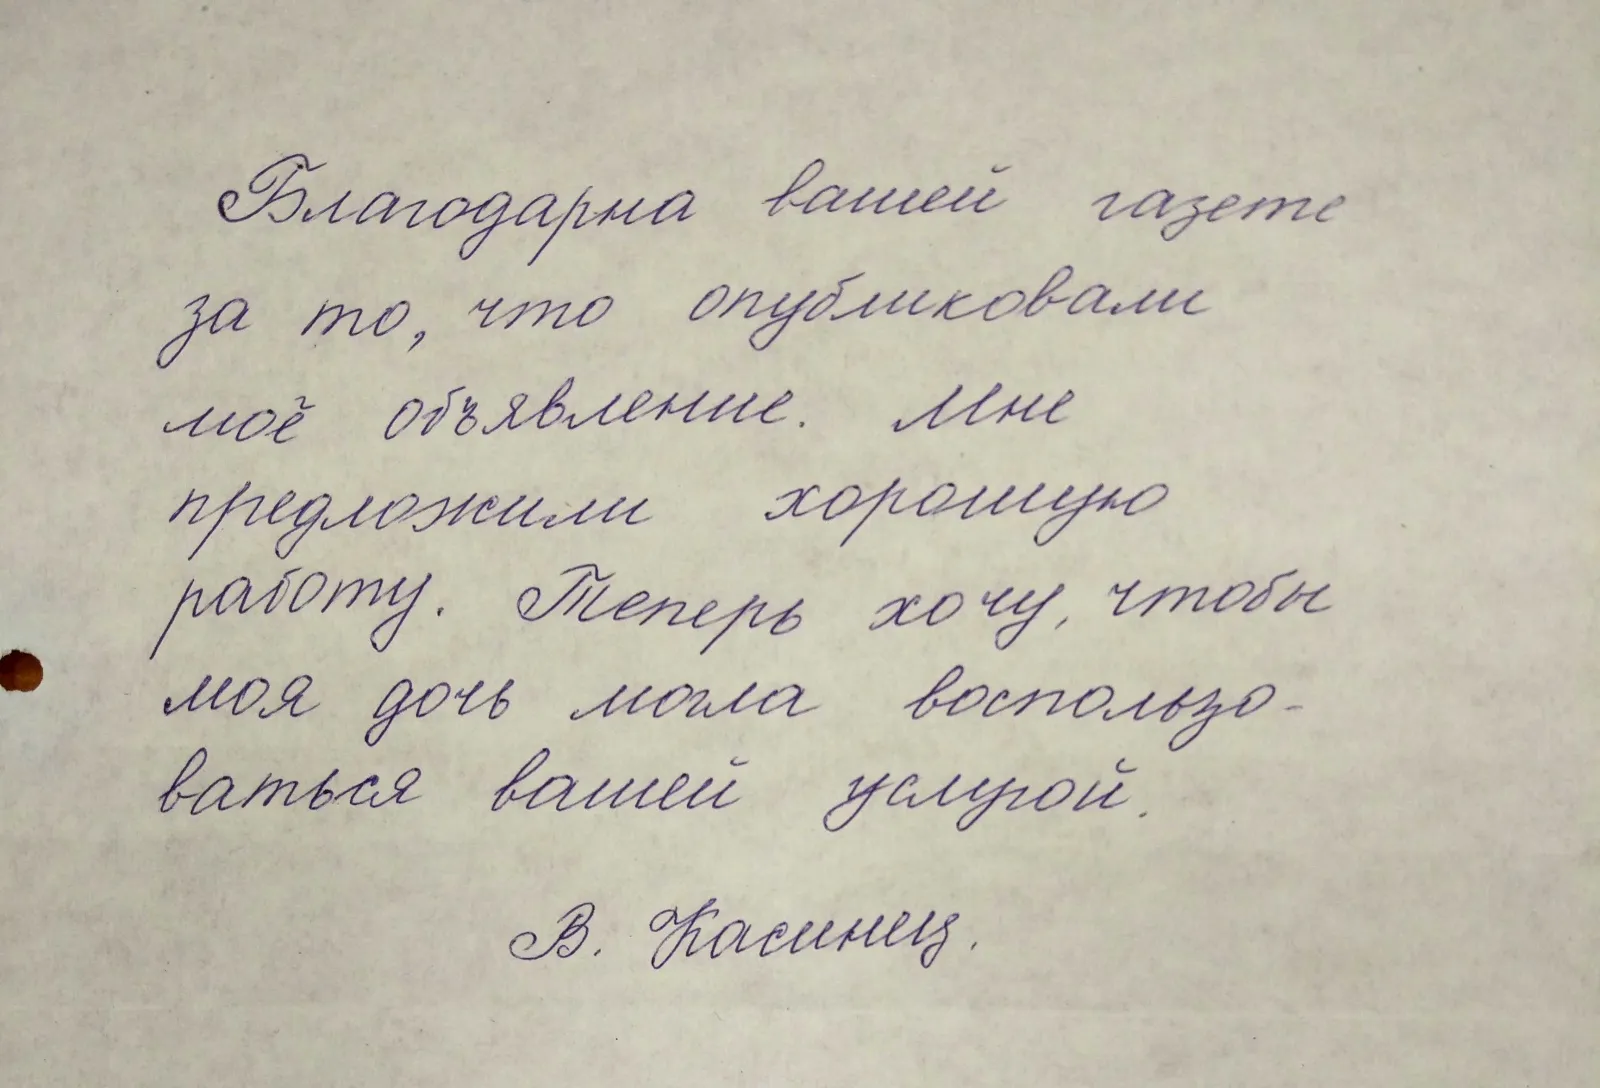 Благодарна вашей газете
за то, что опубликовали
моё объявление. Мне
предложили хорошую
работу. Теперь хочу, чтобы
моя дочь могла воспользо-
ваться вашей услугой.
В. Касинец.